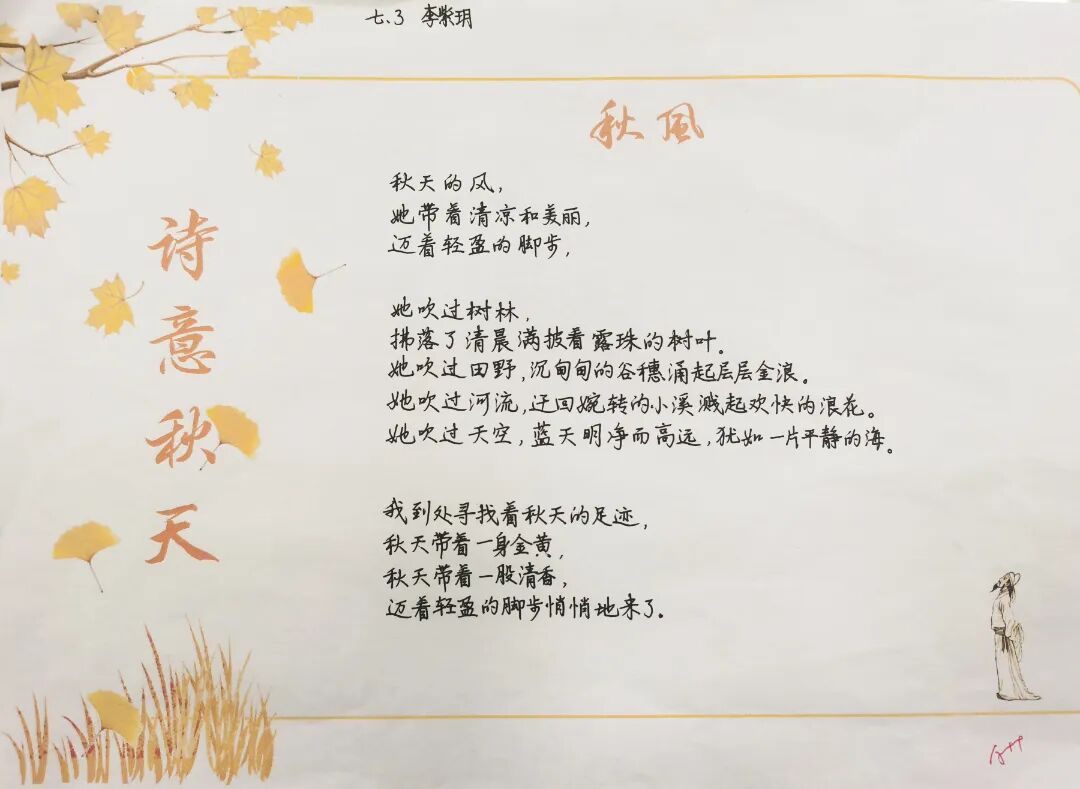 七.3 李紫玥
秋风
诗意秋天
秋天的风，
她带着清凉和美丽，
迈着轻盈的脚步，
她吹过树林，
拂落了清晨满披着露珠的树叶。
她吹过田野，沉甸甸的谷穗涌起层层金浪。
她吹过河流，迂回婉转的小溪溅起欢快的浪花。
她吹过天空，蓝天明净而高远，犹如一片平静的海。
我到处寻找着秋天的足迹，
秋天带着一身金黄，
秋天带着一股清香，
迈着轻盈的脚步悄悄地来了。
A++